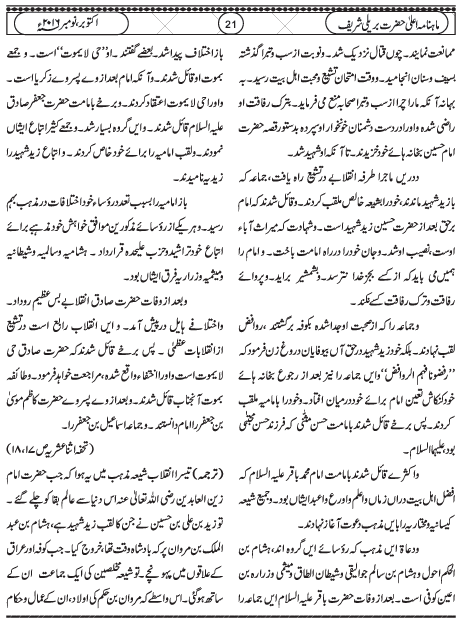 ماہنامہ اعلیٰ حضرت بریلی شریف
21
اکتوبر، نومبر ۲۰۱۶ء
ممانعت نمایند۔ چوں قتال نزدیک شد۔ ونوبت از سب وتبرا گذشتہ
بسیف وسنان انجامید۔ ووقت امتحان تشیع ومحبت اہل بیت رسید۔ بہ
بہانہ آنکہ مارا چرا از سب وتبرا صحابہ منع می فرماید۔ بترک رفاقت او
راضی شدہ واورا در دست دشمنان خونخوار او سپردہ بدستور قصہ حضرت
امام حسین بخانہ ہائے خود خزیدند۔ تا آنکہ او شہید شد۔
دریں ماجرا طرفہ انقلابے در تشیع راہ یافت، جماعہ کہ
با زید شہید ماندند، خود را شیعہ خالص ملقب کردند۔ وقائل شدند کہ امام
برحق بعد از حضرت حسین زید شہید است۔ وشہادت کہ میراث آباء
اوست، نصیب او شد۔ وجان خود را در راہ امامت باخت۔ و امام را
ہمیں می باید کہ از کسے بجز خدا نترسد۔ وبشمشیر براید۔ وپروائے
رفاقت وترک رفاقت کسے نکند۔
و جماعہ را کہ از صحبت او جدا شدہ بکوفہ برگشتند، روافض
لقب نہادند۔ بلکہ خود زید شہید در حق آں بیوفایان دروغ زن فرمود کہ
"رفضونا فہم الروافض" وایں جماعہ را نیز بعد از رجوع بخانہ ہائے
خود کنکاش تعین امام برائے خود درمیان افتاد۔ وخود را بامامیہ ملقب
کردند۔ پس برخے قائل شدند بامامت حسن مثنیٰ کہ فرزند حسن مجتبیٰ
بود، علیہما السلام۔
و اکثرے قائل شدند بامامت امام محمد باقر علیہ السلام کہ
افضل اہل بیت دراں زماں واعلم واورع واعبد ایشاں بود۔ وجمیع شیعہ
کیسانیہ ومختاریہ را بایں مذہب دعوت آغاز نہادند۔
ودعاۃ ایں مذہب کہ رؤسائے ایں گروہ اند، ہشام بن
الحکم احول وہشام بن سالم جوالیقی وشیطان الطاق ومیثمی وزرارہ بن
اعین کوفی است۔ وبعد از وفات حضرت باقر علیہ السلام ایں جماعہ را
باز اختلاف پیدا شد۔ بعضے گفتند۔ او "حی لا یموت" است۔ و جمعے
بموت او قائل شدند۔ وآنکہ امام بعد از وے پسر وے زکریا است۔
واو را حی لا یموت اعتقاد کردند۔ و برخے بامامت حضرت جعفر صادق
علیہ السلام قائل شدند۔ وایں گروہ بسیار شد۔ وجمعے کثیر اتباع ایشاں
نمودند۔ ولقب امامیہ را برائے خود خاص کردند۔ و اتباع زید شہید را
زیدیہ نامیدند۔
باز امامیہ را بسبب تعدد رؤساء خود اختلافات در مذہب بہم
رسید۔ وہر یکے از رؤسائے مذکورین موافق خواہش خود مذہبے برائے
اتباع خود تراشید وحزب علیحدہ قرار داد۔ ہشامیہ وسالمیہ وشیطانیہ
ومیثمیہ وزراریہ فرق ایشاں بود۔
وبعد از وفات حضرت صادق انقلابے بس عظیم روداد۔
واختلافے ہایل درپیش آمد۔ وایں انقلاب رابع است در تشیع
از انقلابات عظمیٰ۔ پس برخے قائل شدند کہ حضرت صادق حی
لا یموت است واورا اختفاء واقع شدہ، مراجعت خواہد فرمود۔ وطائفہ
بموت آنجناب قائل شدند۔ وبعد از وے پسر وے حضرت کاظم موسیٰ
بن جعفر را امام دانستند۔ وجماعہ اسماعیل بن جعفر را۔
(تحفہ اثنا عشریہ ص ۱۷، ۱۸)
(ترجمہ) تیسرا انقلاب شیعہ مذہب میں یہ ہوا کہ جب حضرت امام
زین العابدین رضی اللہ تعالیٰ عنہ اس دنیا سے عالم بقا کو چلے گئے۔
تو زید بن علی بن حسین نے جن کا لقب زید شہید ہے، ہشام بن عبد
الملک بن مروان پر کہ بادشاہ وقت تھا، خروج کیا۔ جب کوفہ اور عراق
کے علاقوں میں پہونچے۔ تو شیعہ مخلصین کی ایک جماعت ان کے
ساتھ ہوگئی۔ اس واسطے کہ مروان بن حکم کی اولاد، ان کے عمال وحکام